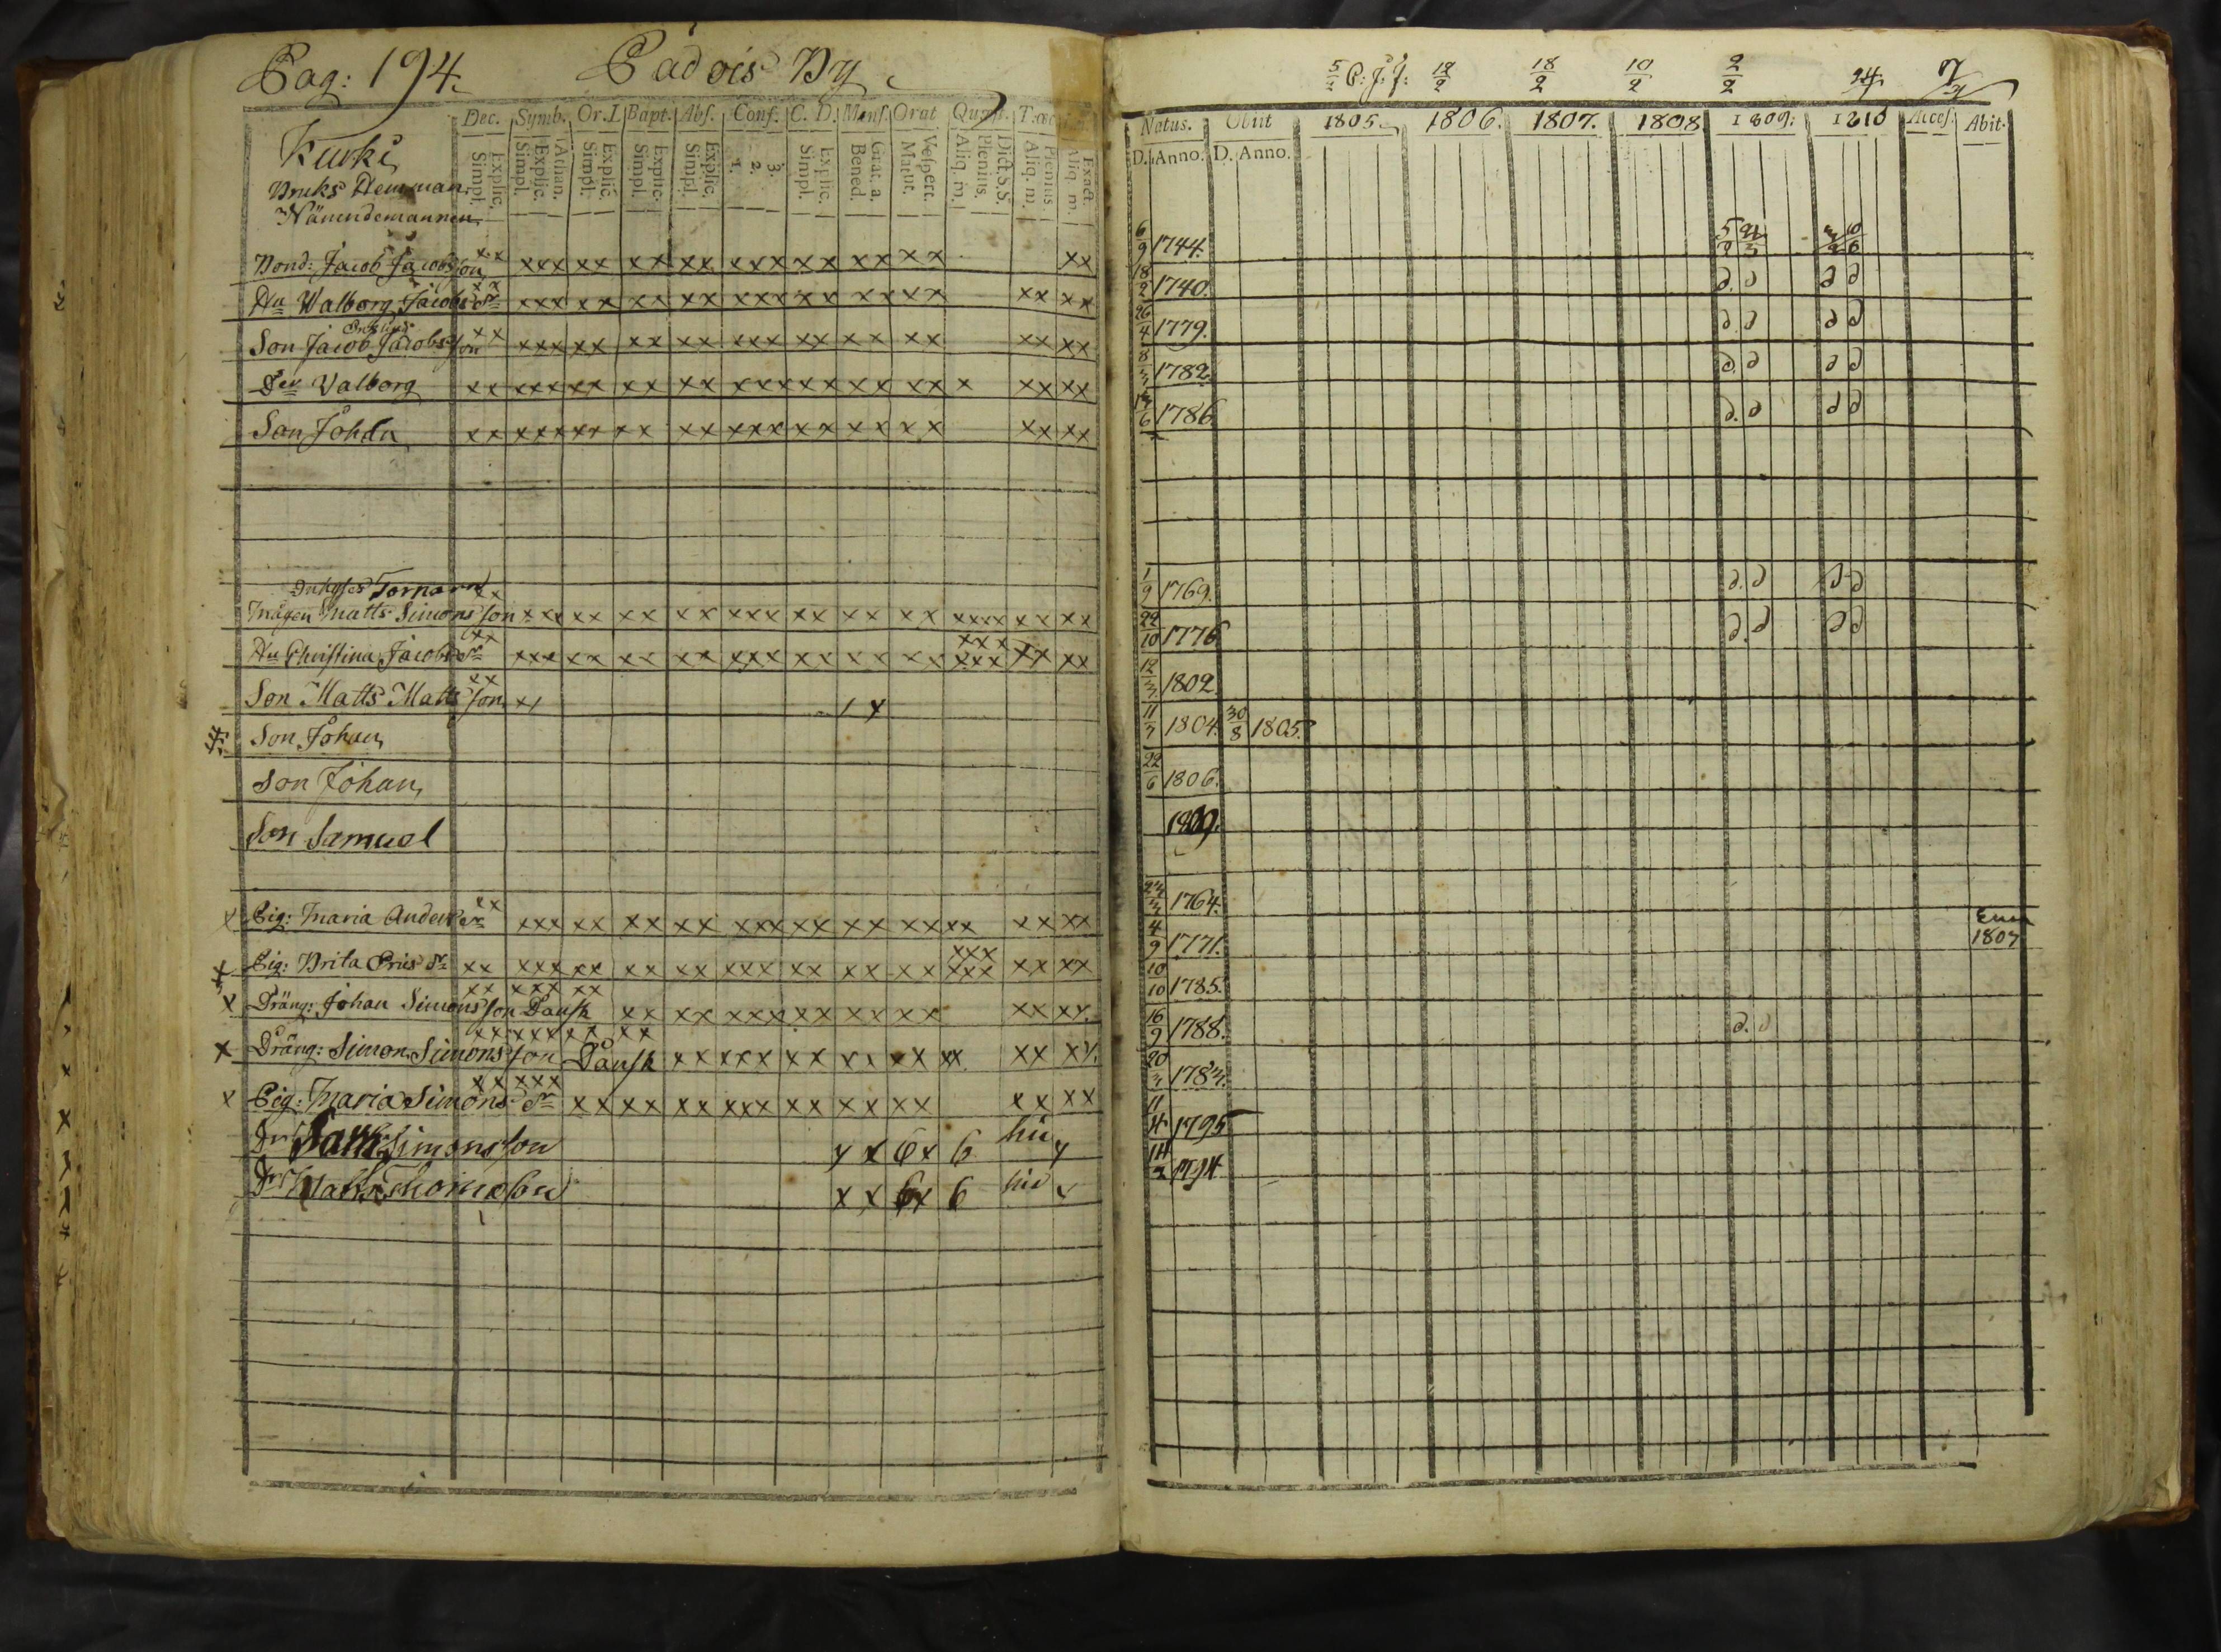 Pag: 194. Padois By
Dec. Symb. Or. D. Bapt. Abs. Conf. C. D. Mens. Orat Quæst.
Explic. Simpl. Athan. Explic. Simpl. Explic. Simpl. Explic. Simpl. Explic. Simpl. 3. 2. 1. Explic. Simpl. Grat. a. Bened. Vespert. Matut. Dict. S.S. Plenius. Aliq. m. Plenius. Aliq. m. Exact. Aliq. m.
Kurki
Bruks Hemman
Nämndemannen
Bond: Jacob Jacobsson xx xxx xx xx xx xxx xx xx xx xx
Hu Walborg Jacobs dr xx xxx xx xx xx xxx xx xx xx xx xx
Son Jacob Jacobsson xx xxx xx xx xx xxx xx xx xx xx xx
Dr Valborg xx xxx xx xx xx xxx xx xx xx x xx xx
Son Johan xx xxx xx xx xx xxx xx xx xx xx xx
Inhyses Tornaren
Mågen Matts Simonsson xxx xx xx xx xxx xx xx xx xxxx xx xx
xxx
Hu Christina Jacobs dr xx xxx xx xx xx xxx xx xx xx xxx xx xx
Son Matts Mattsson xx x/ / x
Son Johan
Son Johan
Son Samuel
x Pig: Maria Anders dr xx xxx xx xx xx xxx xx xx xx xx xx xx
xxx
x Pig: Brita Eriks dr xx xxx xx xx xx xxx xx xx xx xxx xx xx
xx xxx xx
x Dräng: Johan Simonsson Pansk xx xx xxx xx xx xx xx xx
xx xxx xx xx
x Dräng: Simon Simonsson Pansk xx xxx xx xx xx xx xx xx
xx xxx
x Pig: Maria Simons dr xx xx xx xxx xx xx xx xx xx
Dr Sam Simonsson x x 6 x 6
Dr Matts Thomasson x x 6 x 6
18/2 18/2 10/2 2/2
Natus. Obiit 1805. 1806. 1807. 1808 1809. 1810 Acces. Abit.
D. Anno. D. Anno.
6/9 1744.
18/2 1740.
26/4 1779.
8/5 1782.
6 1786
1/9 1769.
22/10 1776
12/3 1802
11/3 1804. 30/8 1805.
22/6 1806.
1809.
1764.
4/9 1771. 1807
10/10 1785.
16/9 1788.
20/3 1783.
11/4 1795
14 1794